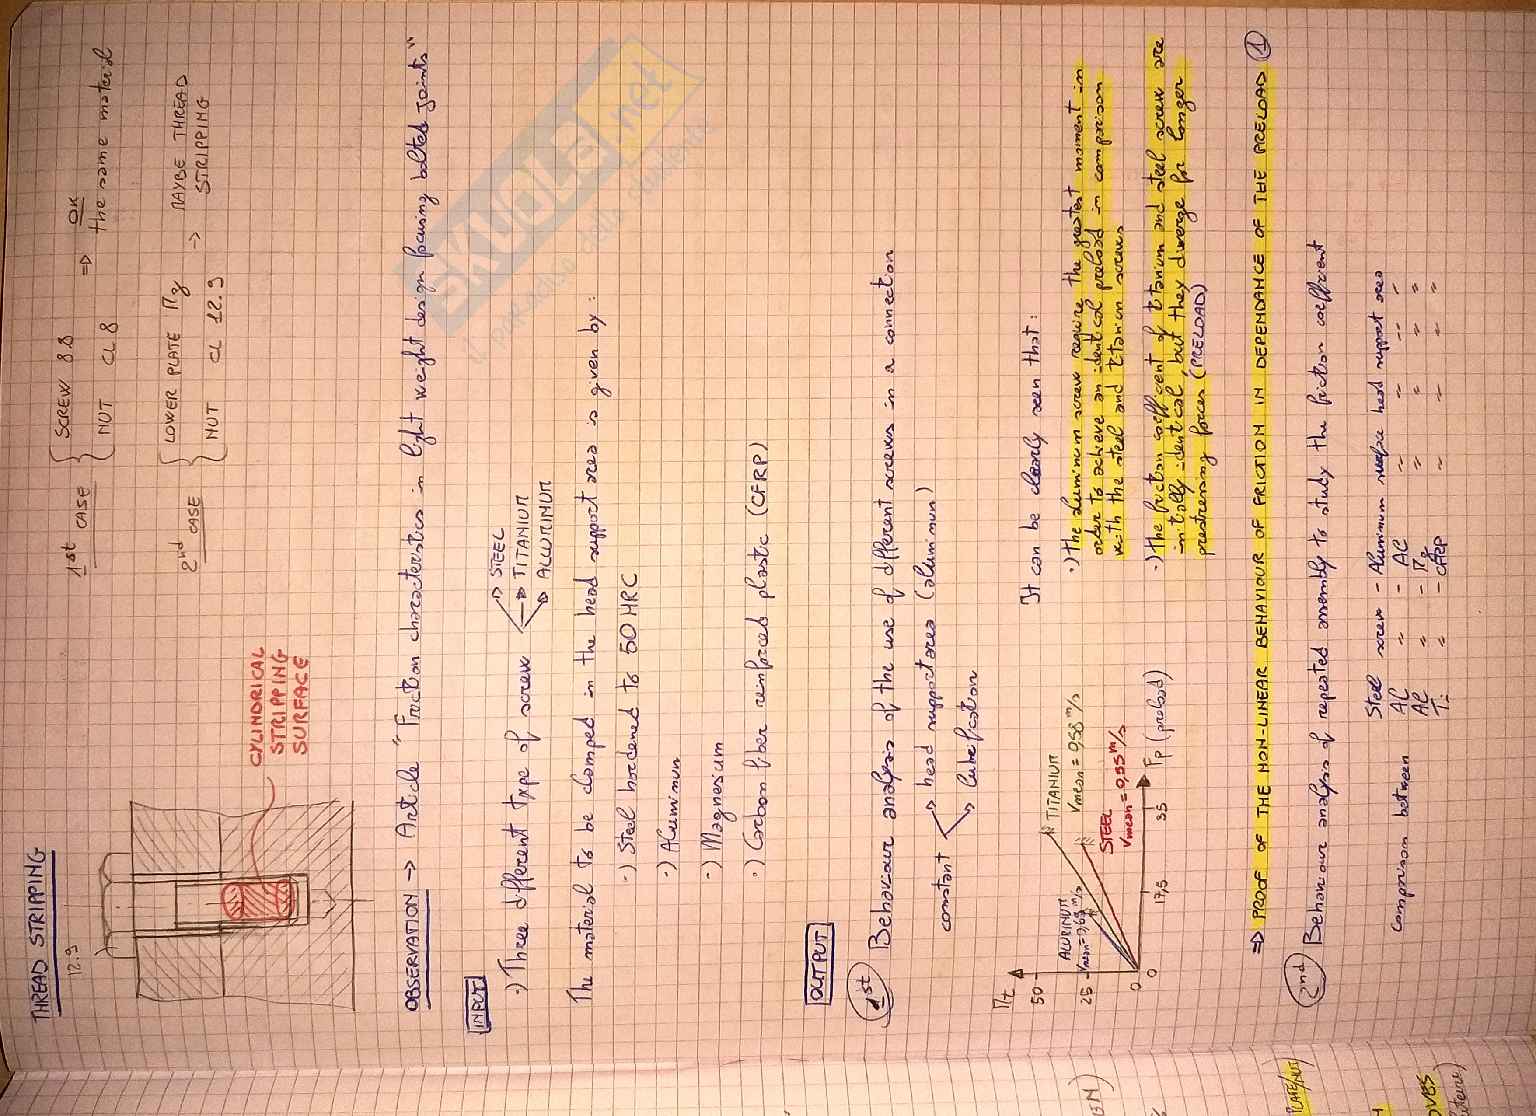 THREAD STRIPPING
12.9
CYLINDRICAL
STRIPPING
SURFACE
1st CASE
SCREW 8.8
NUT CL 8
=> OK
the same material
2nd CASE
LOWER PLATE Mg
NUT CL 12.9
-> MAYBE THREAD
STRIPPING
OBSERVATION -> Article "Friction characteristics in light weight design focusing bolted joints"
INPUT
·) Three different type of screw
-> STEEL
-> TITANIUM
-> ALLUMINUM
The material to be clamped in the head support area is given by:
·) Steel hardened to 50 HRC
·) Aluminum
·) Magnesium
·) Carbon fiber reinforced plastic (CFRP)
OUTPUT
1st Behaviour analysis of the use of different screws in a connection
constant
-> head support area (aluminum)
-> lubrification
Mt
50
25
0
0
17,5
35
Fp (preload)
ALUMINUM
TITANIUM
νmean = 0,58 m/s
STEEL
νmean = 0,55 m/s
It can be clearly seen that:
·) the aluminum screw require the greatest moment in
order to achieve an identical preload in comparison
with the steel and titanium screws
·) the friction coefficient of titanium and steel screw are
initially identical, but they diverge for longer
prestressing forces (PRELOAD)
=> PROOF OF THE NON-LINEAR BEHAVIOUR OF FRICTION IN DEPENDANCE OF THE PRELOAD 1
2nd Behaviour analysis of repeated assembly to study the friction coefficient
comparison between
Steel screw - Aluminum surface head support area
Al " - Al " " " "
Al " - Mg " " " "
Ti " - CFRP " " " "
SKUOLA.net
il paradiso dello studente
PLATE/NUT